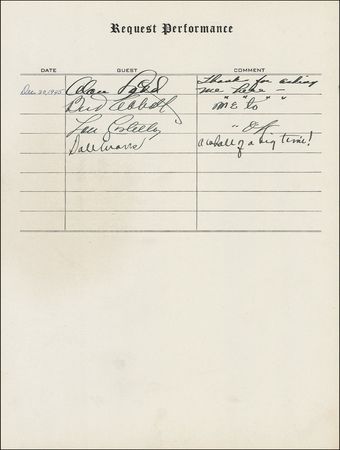 Request Performance
DATE GUEST COMMENT
Dec 30, 1945 Alan Ladd Thank for asking
me here –
Bud Abbott " " " "
me to
Lou Costello " O.K.
Dale Evans a whale of a big time!